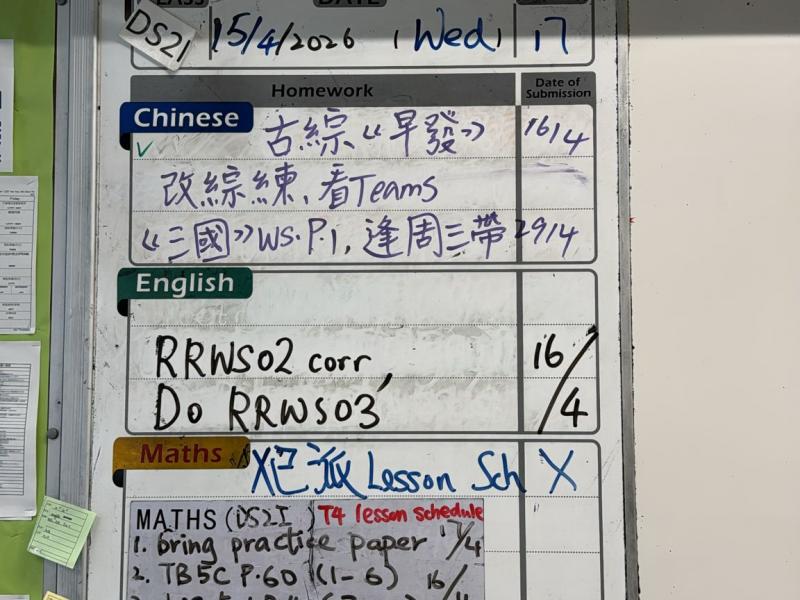 DATE
DS21 15/4/2026 (Wed) 17
Homework Date of Submission
Chinese
古綜《早發》 16/4
改綜練、看Teams
《三國》WS.P.1, 逢周三帶 29/4
English
RRWS02 corr, 16/4
Do RRWS03
Maths
Lesson Sch X
MATHS (DS2I) T4 lesson schedule
1. bring practice paper 17/4
2. TB5C P.60 (1-6) 16/